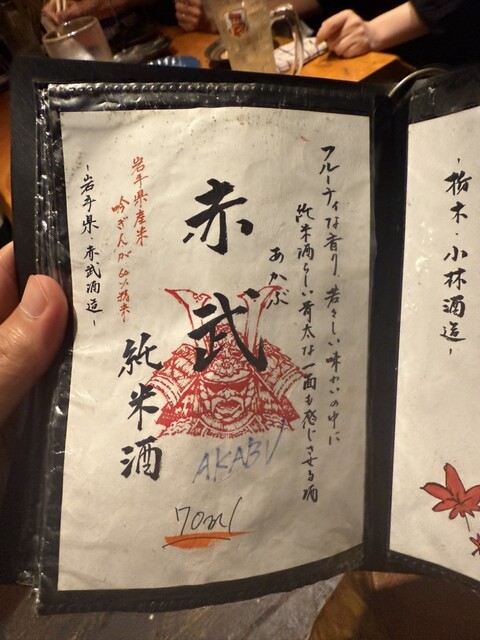 フルーティな香り、若々しい味わいの中に
純米酒らしい骨太な一面も感じさせる酒
あかぶ
赤武
AKABU
純米酒
岩手県産米
吟ぎんが
精米-
-岩手県・赤武酒造-
70ml
-栃木・小林酒造-